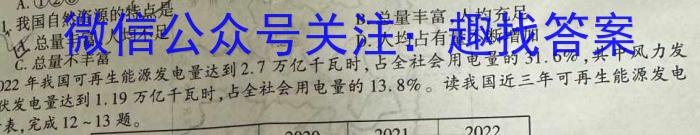 A. ①②③
我国自然资源的特点是
A. 总量丰富 人均不足
B. 总量丰富 人均充足
C. 总量不丰富
D. 人均占有
微信公众号关注：趣找答案
022年我国可再生能源发电量达到2.7万亿千瓦时,占全社会用电量的31.6%,其中风力发
伏发电量达到1.19万亿千瓦时,占全社会用电量的13.8%。读我国近三年可再生能源发电
表,完成12~13题。
2020 2021 2022